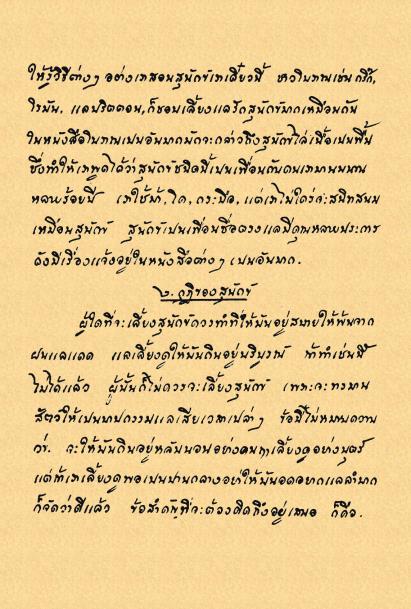 ให้รู้วิธีต่างๆ อย่างเราสอนสุนัขเราเดี๋ยวนี้ ชาวโบราณเช่นกรีก,
โรมัน, แลบริตตอน, ก็ชอบเลี้ยงแลรักสุนัขมากเหมือนกัน
ในหนังสือโบราณเปนอันมากมักจะกล่าวถึงสุนัขไล่เนื้อเปนพื้น
ซึ่งทำให้เราพูดได้ว่าสุนัขชนิดนี้เปนเพื่อนกับคนเรามานมนาน
หลายร้อยปี เราใช้ม้า, โค, กระบือ, แต่เราไม่ใคร่จะสนิทสนม
เหมือนสุนัข สุนัขเปนเพื่อนซื่อตรงแลมีคุณหลายประการ
ดังมีเรื่องแจ้งอยู่ในหนังสือต่างๆ เปนอันมาก.
๒. กุฏิของสุนัข
ผู้ใดที่จะเลี้ยงสุนัขควรทำที่ให้มันอยู่สบายให้พ้นจาก
ฝนแลแดด แลเลี้ยงดูให้มันกินอยู่บริบูรณ์ ถ้าทำเช่นนี้
ไม่ได้แล้ว ผู้นั้นก็ไม่ควรจะเลี้ยงสุนัข เพราะจะทรมาน
สัตว์ให้เปนบาปกรรมแลเสียเวลาเปล่าๆ ข้อนี้ไม่หมายความ
ว่า จะให้มันกินอยู่หลับนอนอย่างคนหาเลี้ยงดูอย่างบุตร์
แต่ถ้าเราเลี้ยงดูพอเปนปานกลางอย่าให้มันอดอยากแลลำบาก
ก็จัดว่าดีแล้ว ข้อสำคัญที่จะต้องคิดถึงอยู่เสมอ ก็คือ.